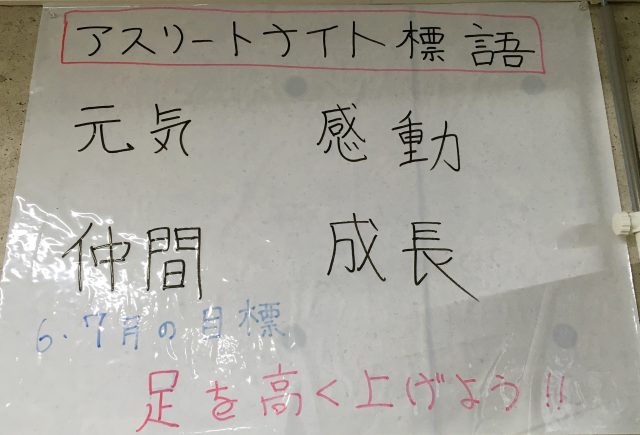 アスリートナイト標語
元気 感動
仲間 成長
6.7月の目標
足を高く上げよう!!